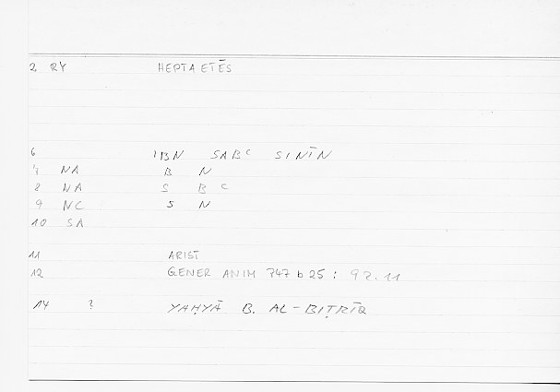 2 RY HEPTAETĒS
6 IBN SABC SINĪN
7 NA B N
8 NA S B C
9 NC S N
10 SA
11 ARIST
12 GENER ANIM 747 b 25 : 97.11
14 ? YAḤYĀ B. AL-BIṬRĪQ